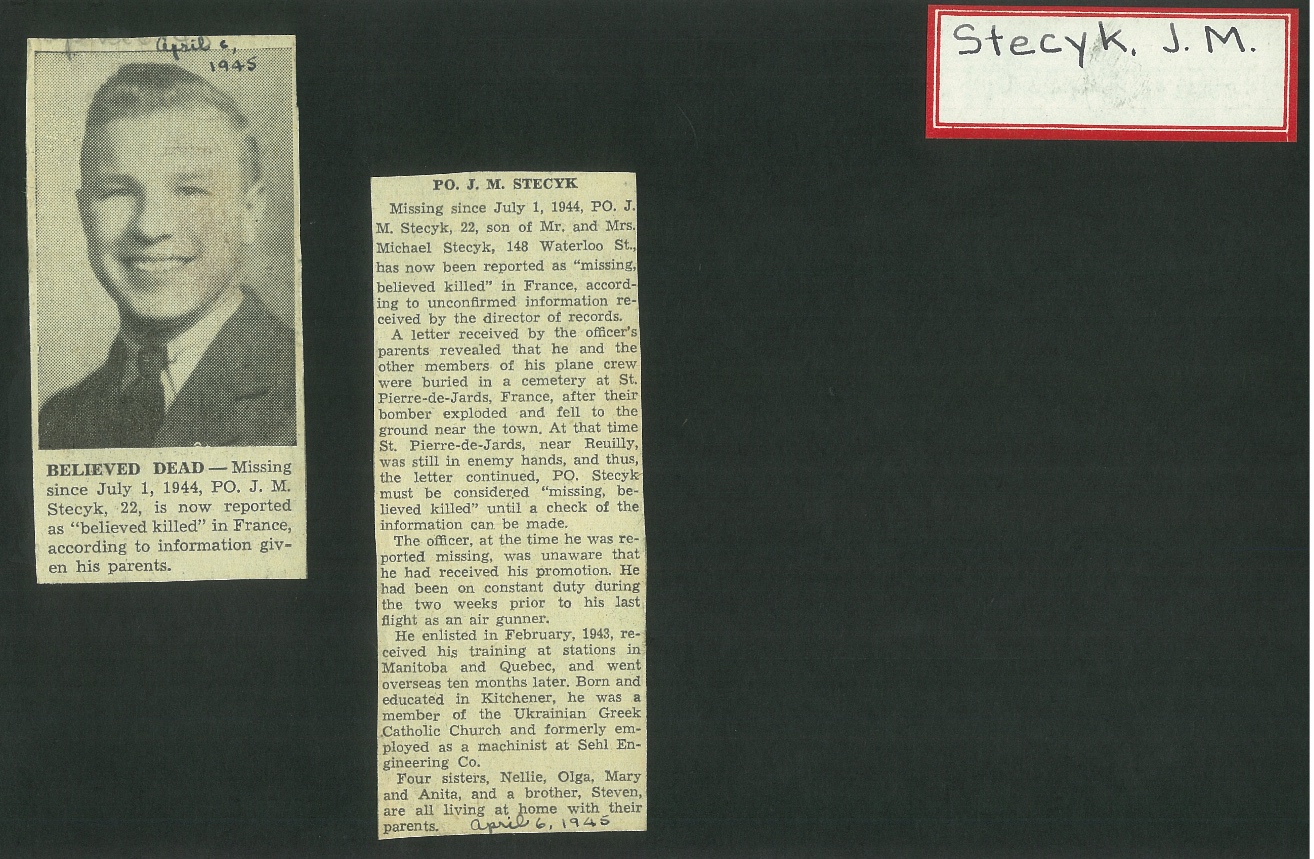 April 6,
1945
BELIEVED DEAD — Missing
since July 1, 1944, PO. J. M.
Stecyk, 22, is now reported
as "believed killed" in France,
according to information giv-
en his parents.
PO. J. M. STECYK
Missing since July 1, 1944, PO. J.
M. Stecyk, 22, son of Mr. and Mrs.
Michael Stecyk, 148 Waterloo St.,
has now been reported as "missing,
believed killed" in France, accord-
ing to unconfirmed information re-
ceived by the director of records.
A letter received by the officer's
parents revealed that he and the
other members of his plane crew
were buried in a cemetery at St.
Pierre-de-Jards, France, after their
bomber exploded and fell to the
ground near the town. At that time
St. Pierre-de-Jards, near Reuilly,
was still in enemy hands, and thus,
the letter continued, PO. Stecyk
must be considered "missing, be-
lieved killed" until a check of the
information can be made.
The officer, at the time he was re-
ported missing, was unaware that
he had received his promotion. He
had been on constant duty during
the two weeks prior to his last
flight as an air gunner.
He enlisted in February, 1943, re-
ceived his training at stations in
Manitoba and Quebec, and went
overseas ten months later. Born and
educated in Kitchener, he was a
member of the Ukrainian Greek
Catholic Church and formerly em-
ployed as a machinist at Sehl En-
gineering Co.
Four sisters, Nellie, Olga, Mary
and Anita, and a brother, Steven,
are all living at home with their
parents. April 6, 1945
Stecyk, J. M.